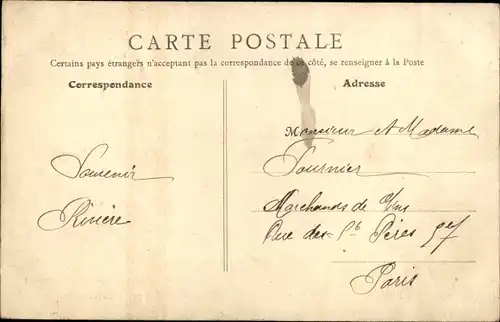 CARTE POSTALE
Certains pays étrangers n'acceptant pas la correspondance de ce côté, se renseigner à la Poste
Correspondance
Adresse
Monsieur et Madame
Fournier
Marchands de Vins
Rue des Sts Pères
Paris
Souvenir
Rivière